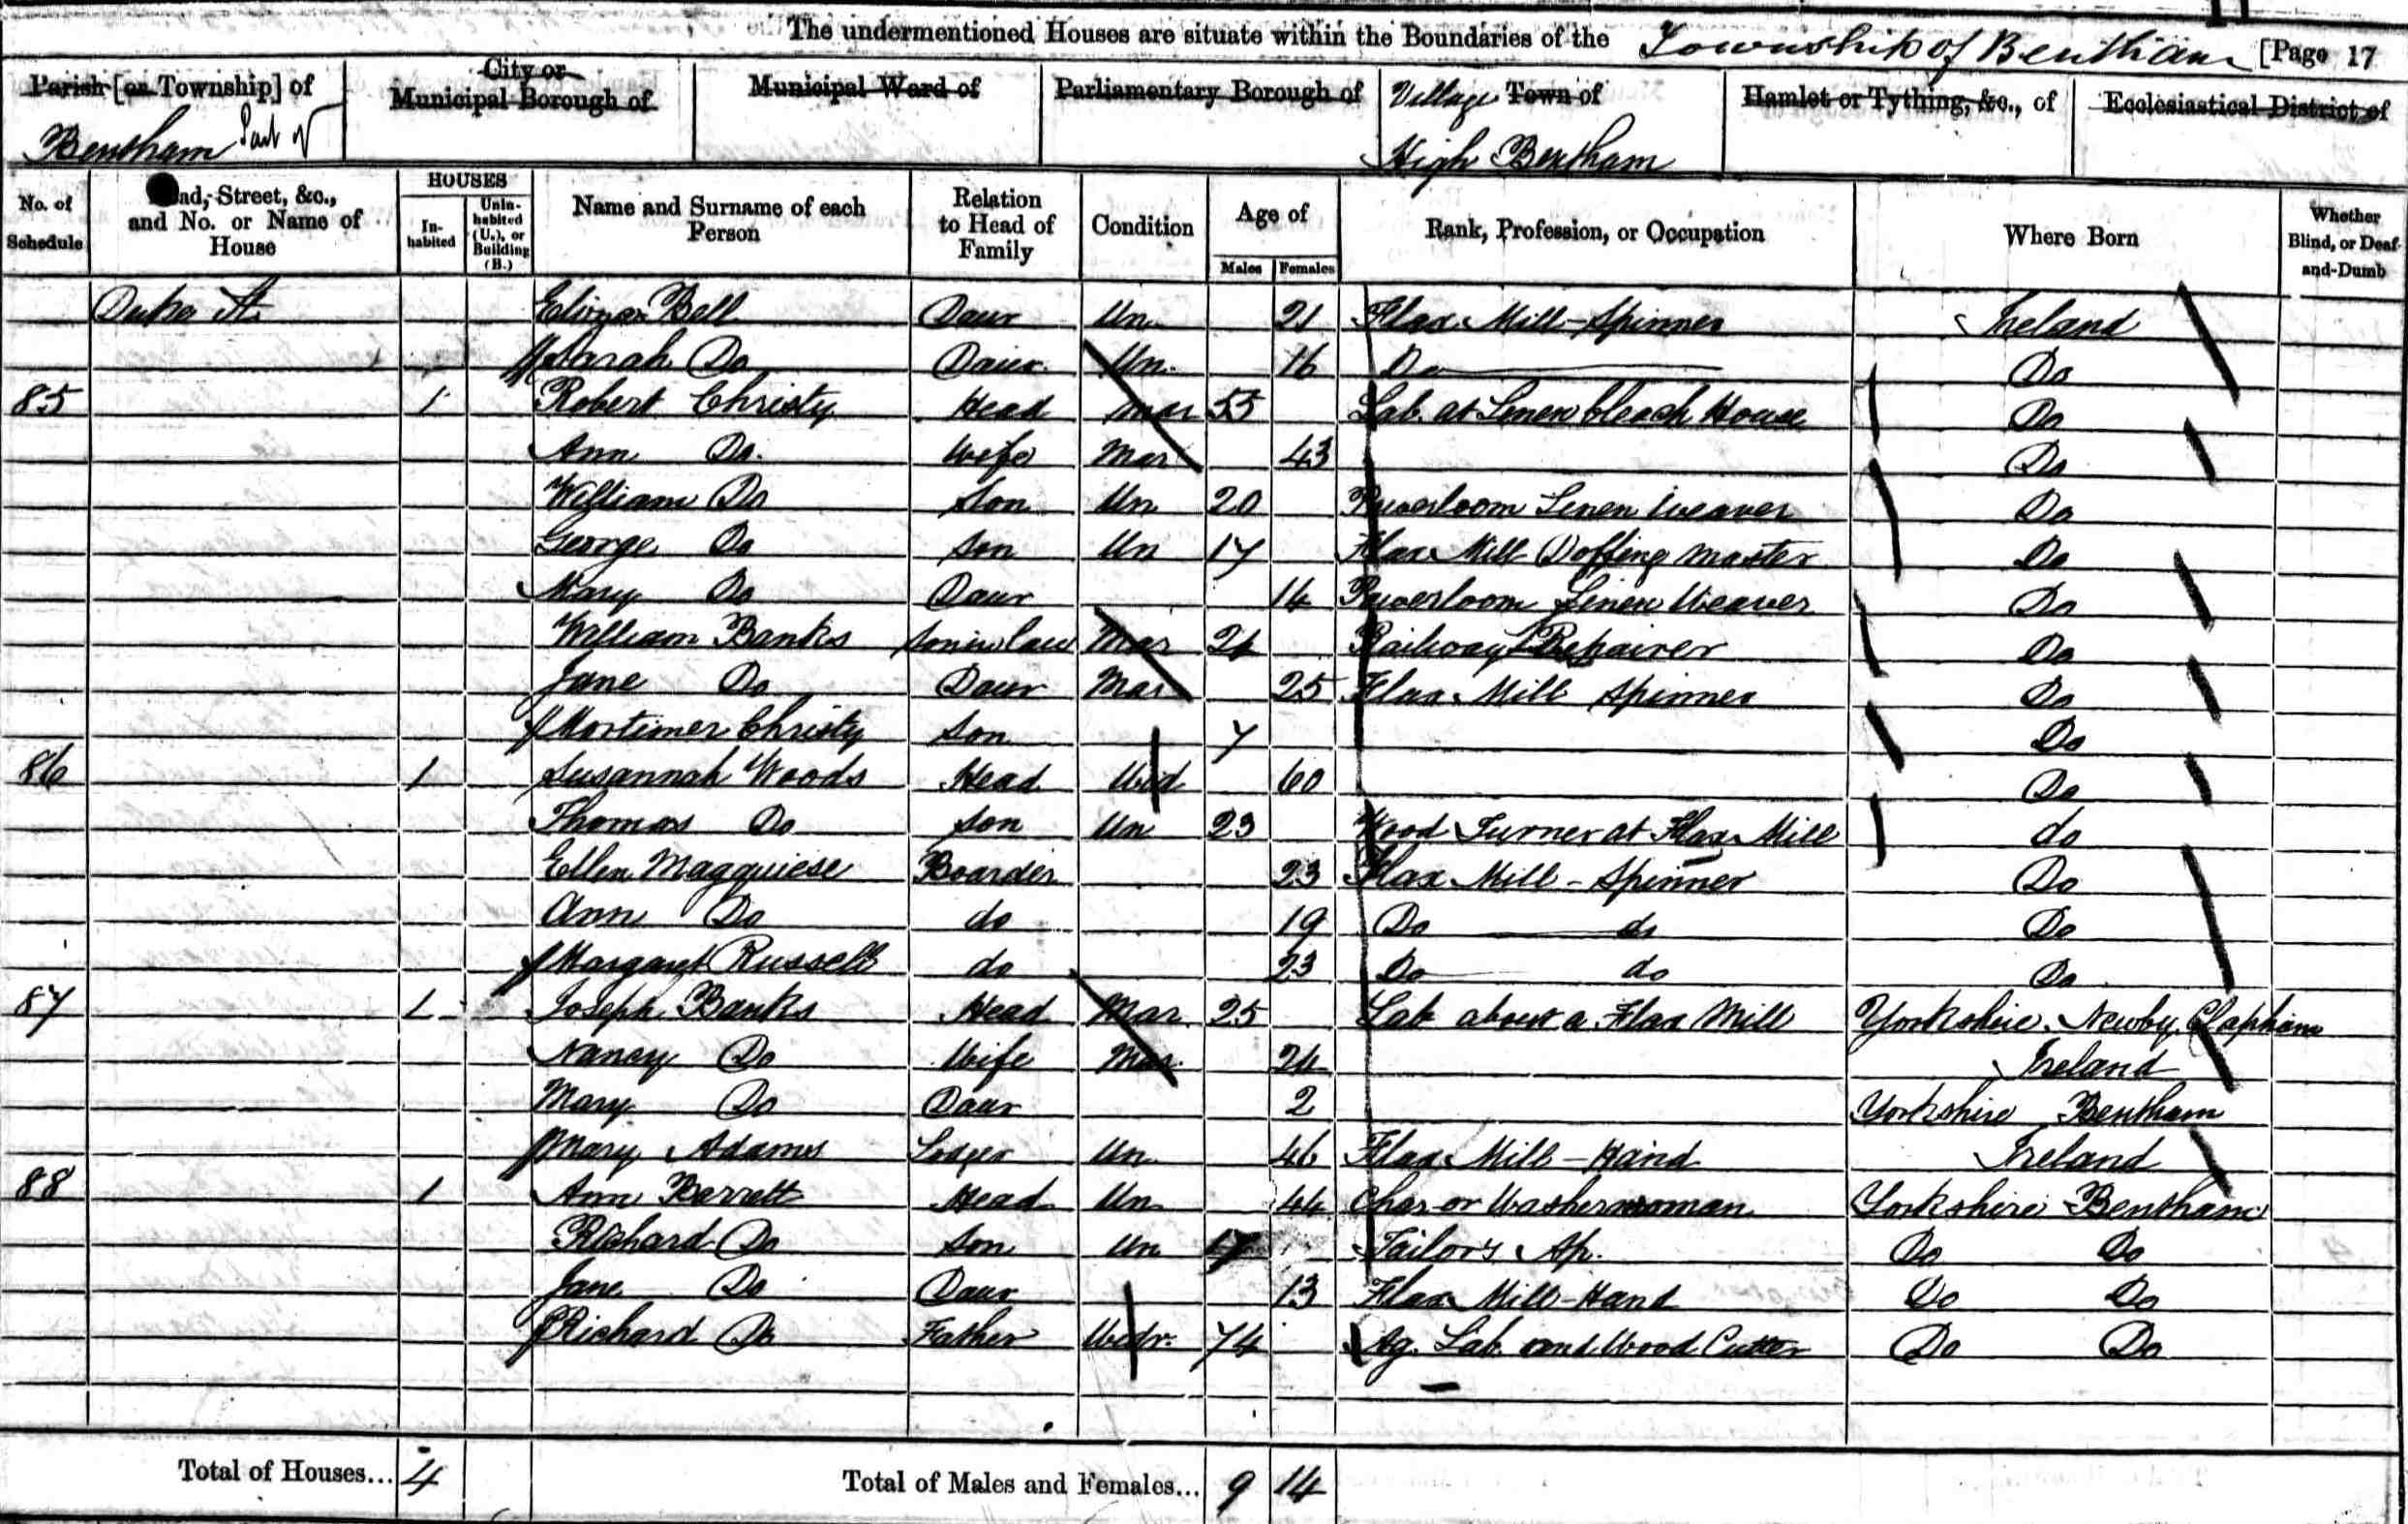 The undermentioned Houses are situate within the Boundaries of the Township of Bentham [Page 17
Parish [or Township] of City or Municipal Borough of Municipal Ward of Parliamentary Borough of Village Town of Hamlet or Tything, &c., of Ecclesiastical District of
Bentham Part of High Bentham
No. of Schedule Road, Street, &c., and No. or Name of House HOUSES Inhabited Uninhabited (U.), or Building (B.) Name and Surname of each Person Relation to Head of Family Condition Age of Males Females Rank, Profession, or Occupation Where Born Whether Blind, or Deaf-and-Dumb
Duke St. Bell Daur Un 21 Flax Mill - Spinner Ireland
Sarah Do Daur. Un. 16 Do Do
85 1 Robert Christy Head Mar 55 Lab. at Linen bleach House Do
Ann Do. Wife Mar 43 Do
William Do Son Un 20 Powerloom Linen Weaver Do
George Do Son Un 17 Flax Mill Doffing Master Do
Mary Do Daur 14 Powerloom Linen Weaver Do
William Banks Son in law Mar 24 Railway Repairer Do
Jane Do Daur Mar 25 Flax Mill Spinner Do
Mortimer Christy Son 7 Do
86 1 Susannah Woods Head Wid 60 Do
Thomas Do Son Un 23 Wood Turner at Flax Mill do
Ellen Magguiese Boarder 23 Flax Mill - Spinner Do
Ann Do do 19 Do do Do
Margaret Russell do 23 Do do Do
87 1 Joseph Banks Head Mar 25 Lab about a Flax Mill Yorkshire. Newby Clapham
Nancy Do Wife Mar. 24 Ireland
Mary Do Daur 2 Yorkshire Bentham
Mary Adams Lodger Un 46 Flax Mill - Hand Ireland
88 1 Ann Barrett Head Un 44 Char or Washerwoman Yorkshire Bentham
Richard Do Son Un 17 Tailor's Ap. Do Do
Jane Do Daur 13 Flax Mill - Hand Do Do
Richard Do Father Wdr. 74 Ag. Lab. and Wood Cutter Do Do
Total of Houses... 4 Total of Males and Females... 9 14